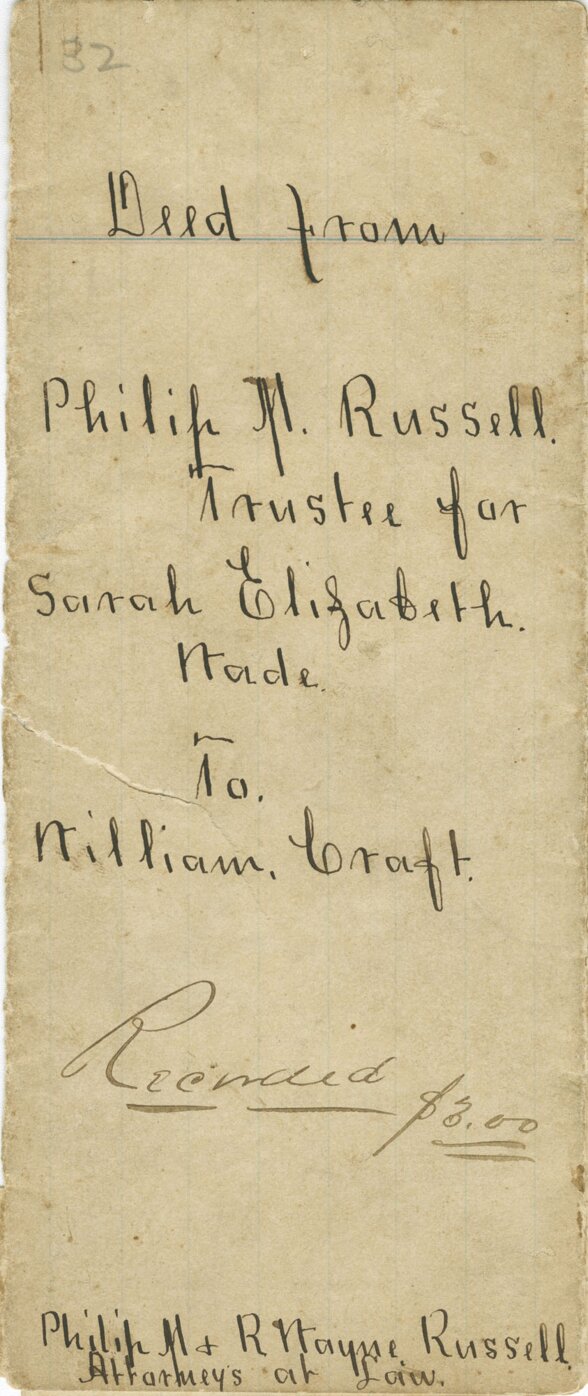 32
Deed from
Philip M. Russell.
Trustee for
Sarah Elizabeth.
Wade.
To.
William. Craft.
Recorded $3.00
Philip M & R Wayne Russell.
Attorneys at Law.